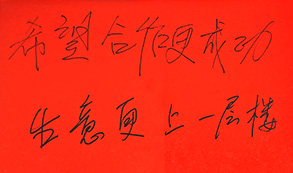 希望合作更成功
生意更上一层楼